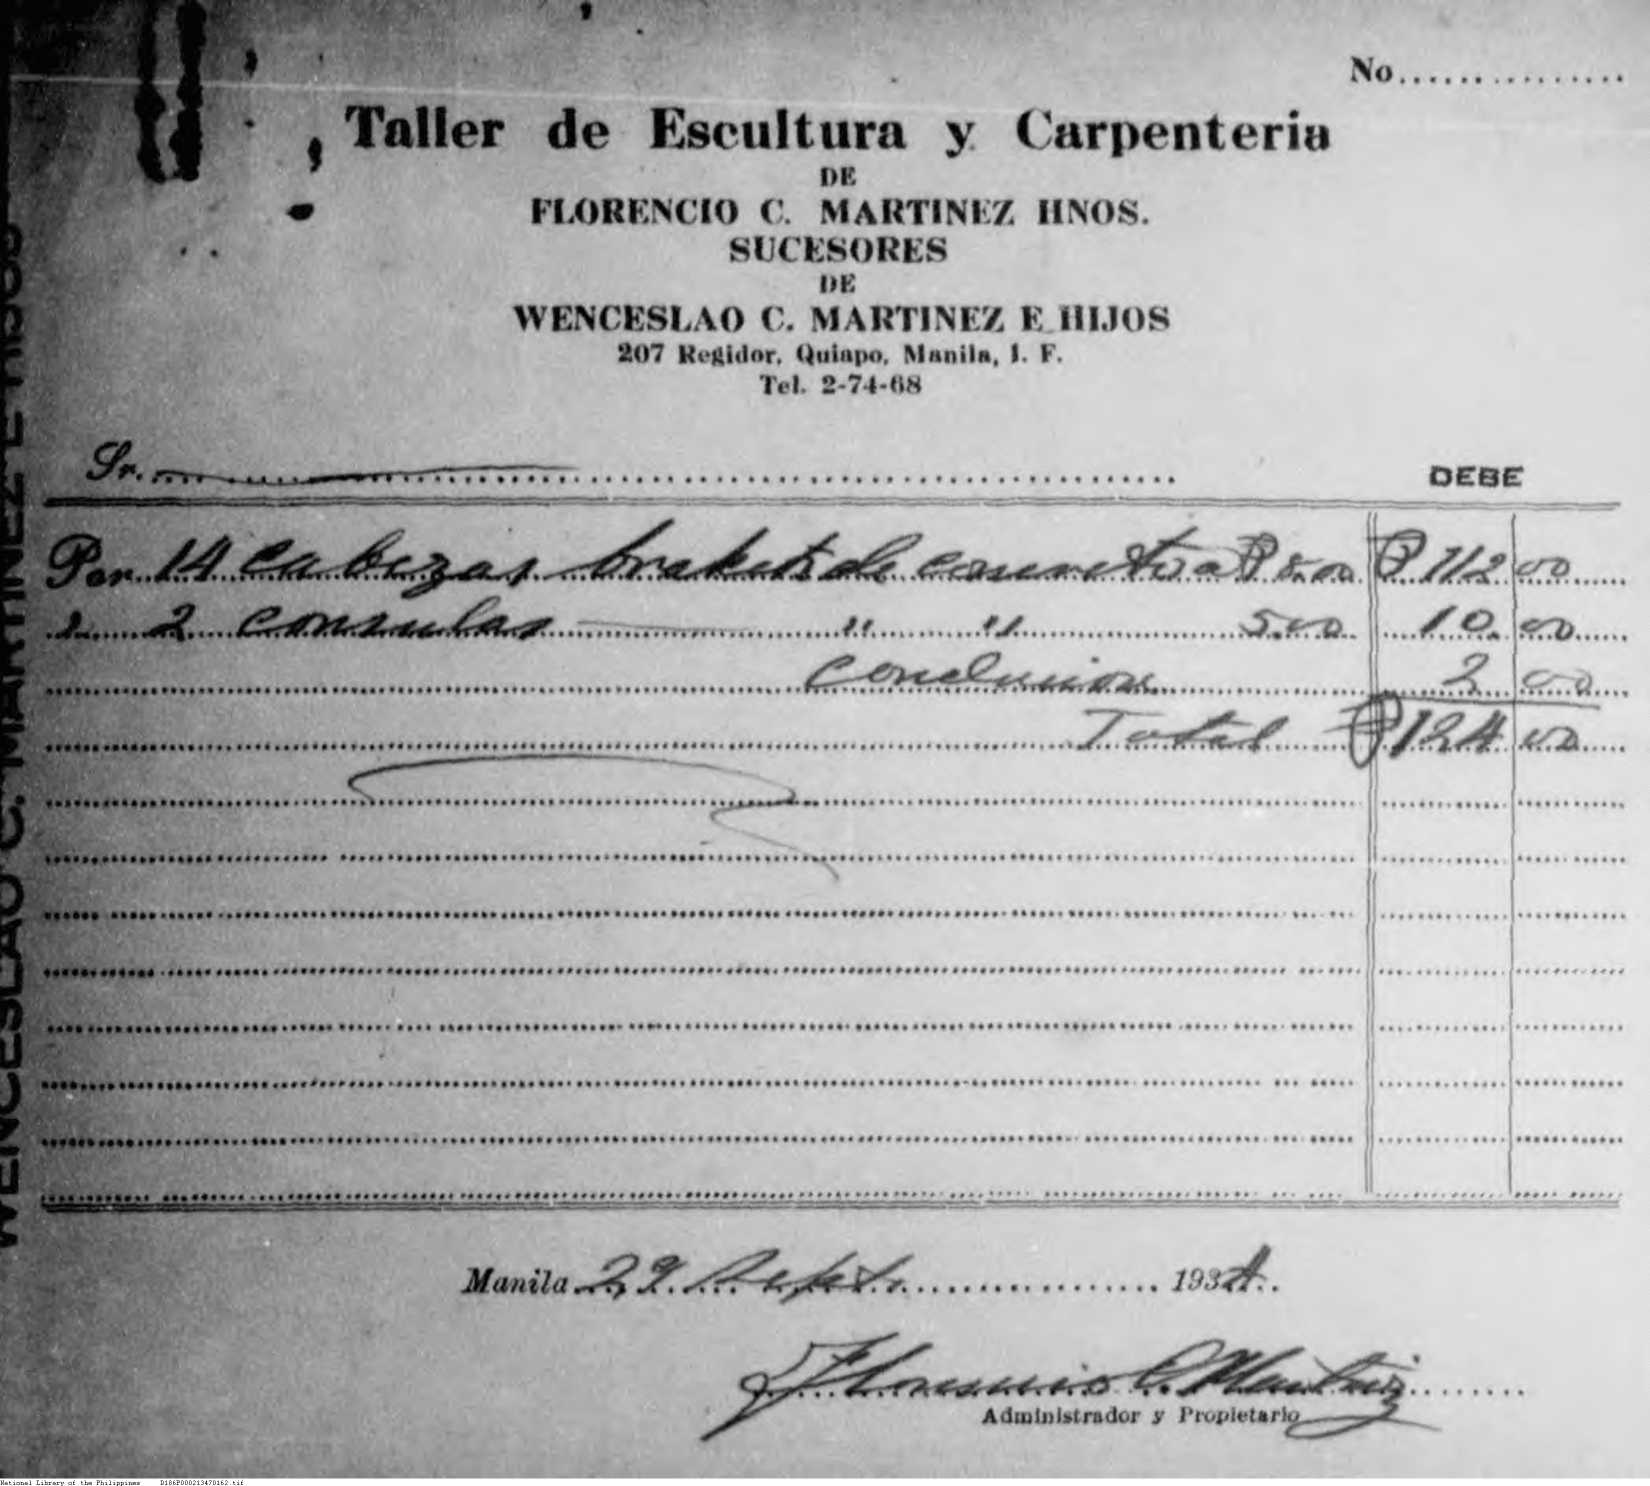 No...............
Taller de Escultura y Carpenteria
DE
FLORENCIO C. MARTINEZ HNOS.
SUCESORES
DE
WENCESLAO C. MARTINEZ E HIJOS
207 Regidor, Quiapo, Manila, I. F.
Tel. 2-74-68
Sr.
DEBE
Por 14 cabezas brakets de concreto a ₱ 8.00 ₱ 112 00
" 2 consulas " " 5.00 10. 00
conclucion 2 00
Total ₱ 124 00
Manila 29 Sept. 1934.
Florencio C. Martinez
Administrador y Propietario
WENCESLAO C. MARTINEZ E HIJOS
National Library of the Philippines D186P000213470162.tif